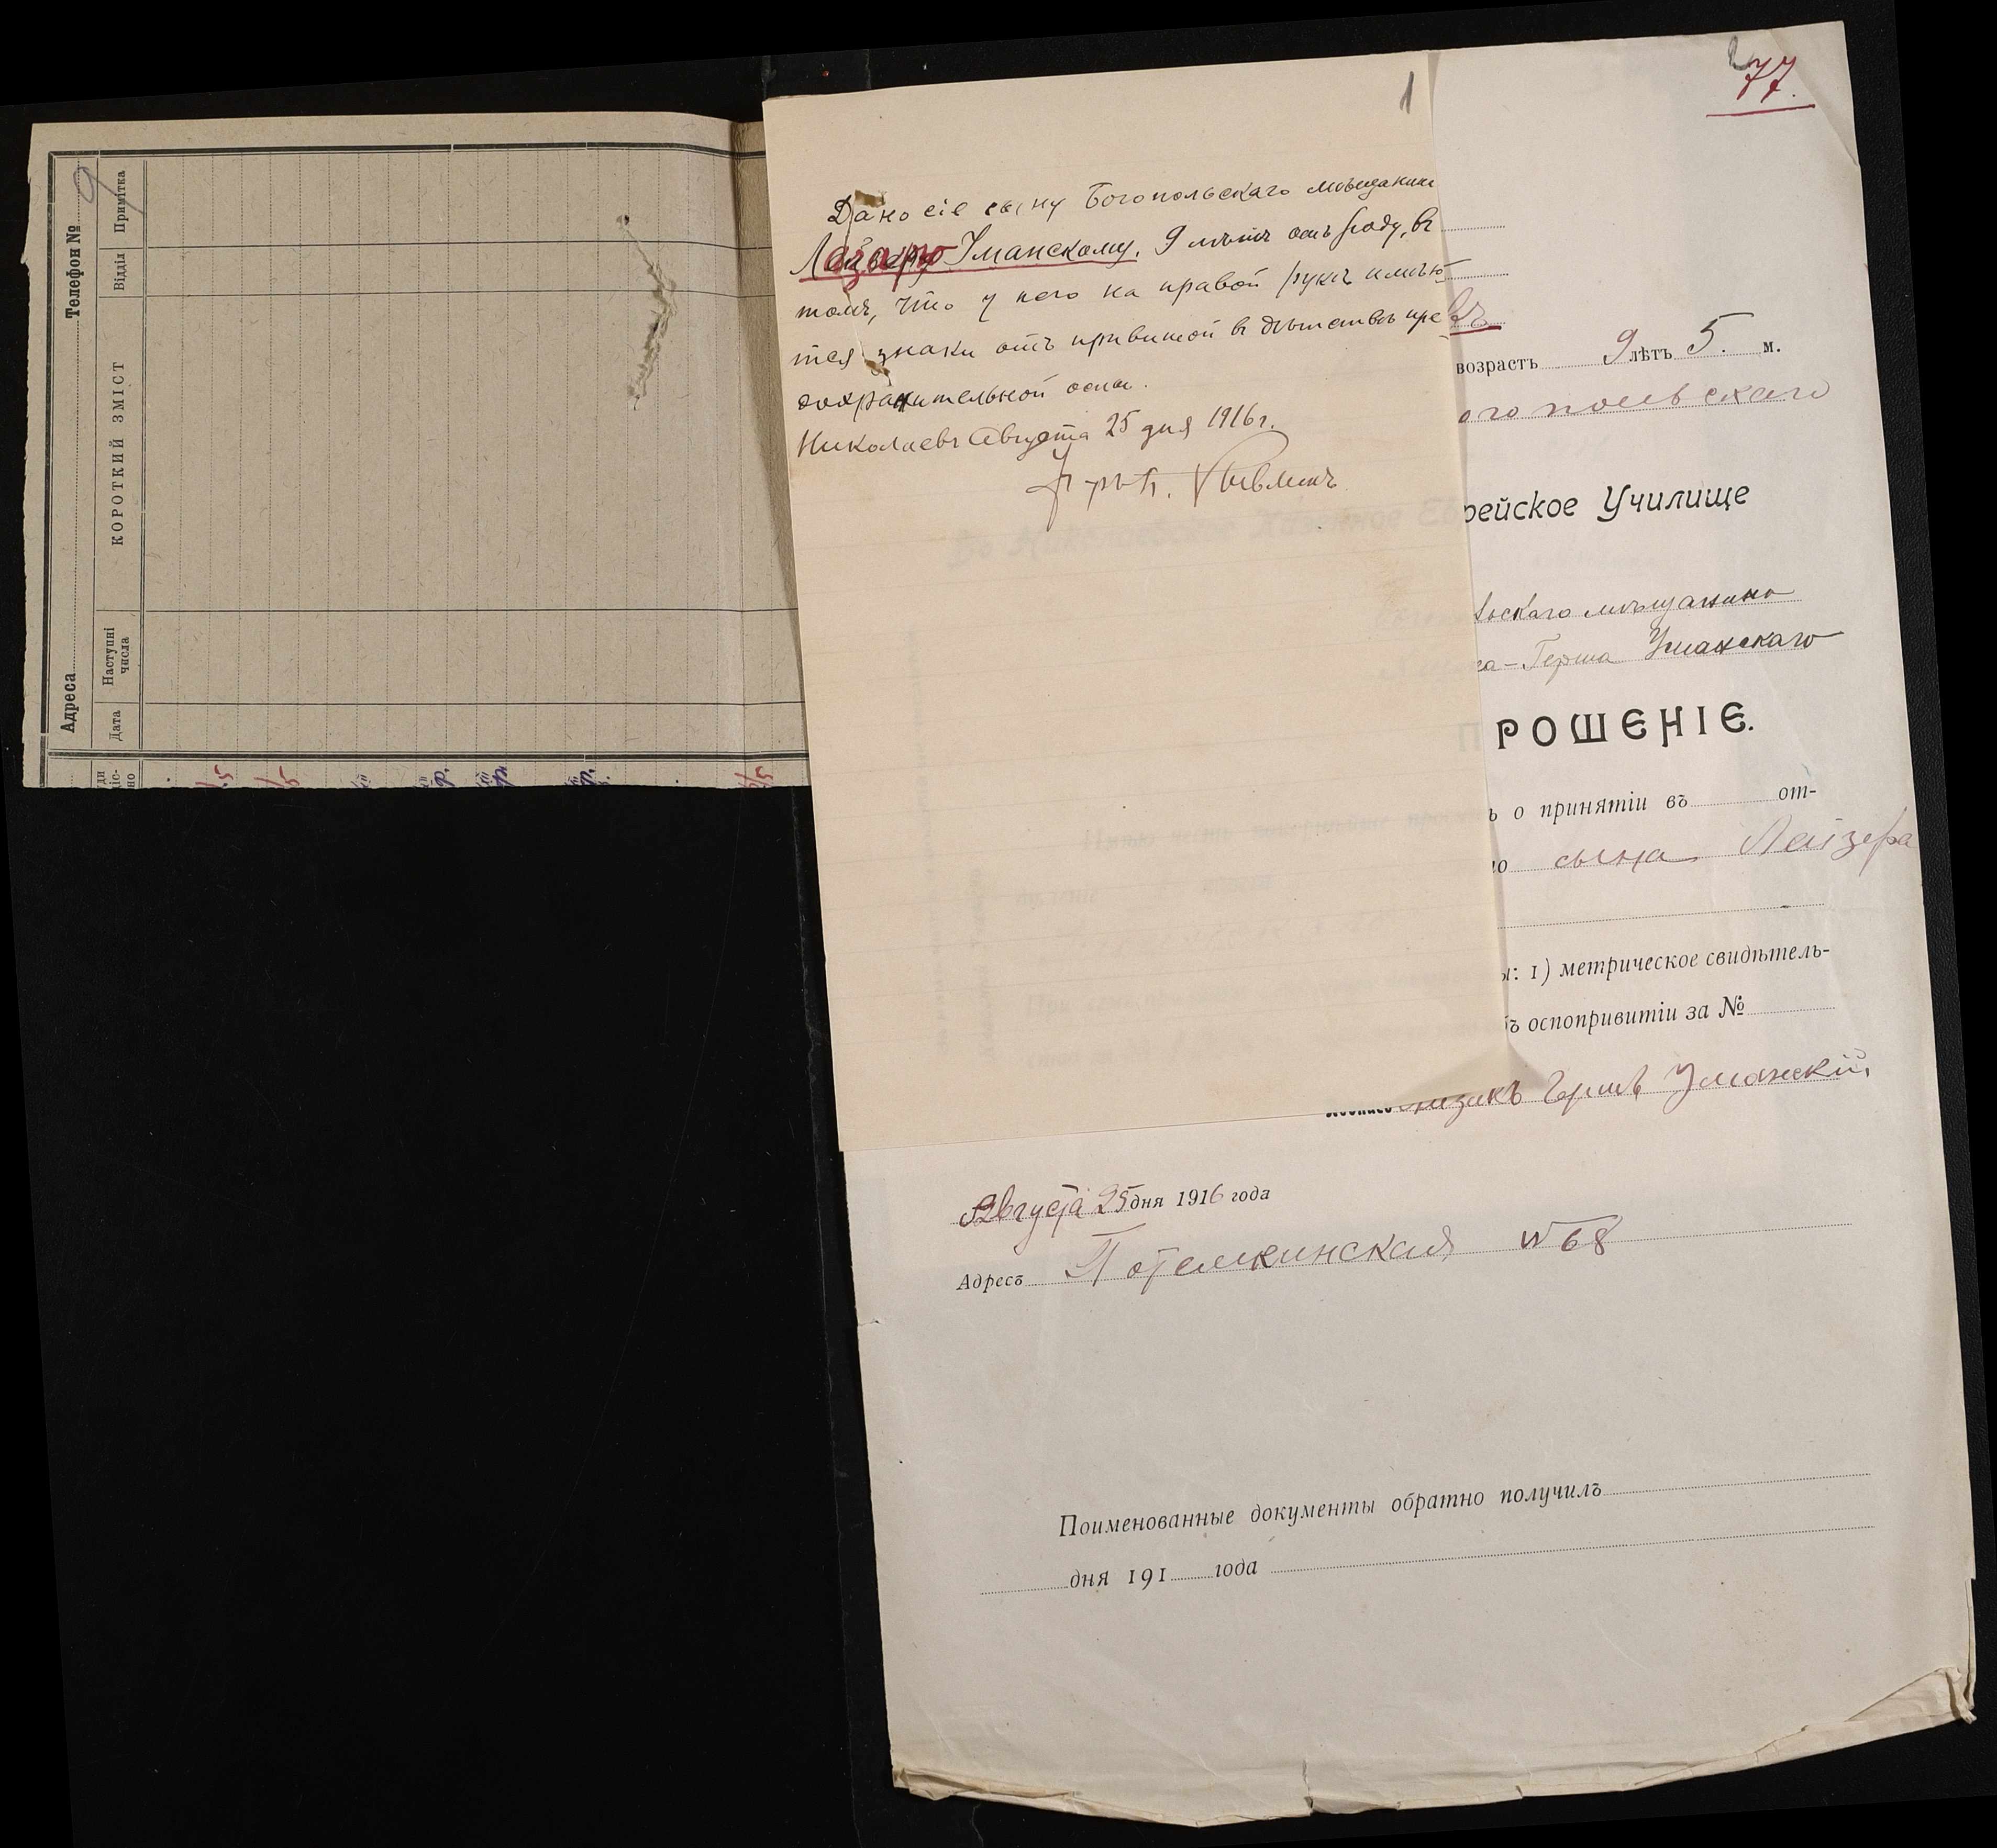 Адреса Телефон №
Дата Наступні числа КОРОТКИЙ ЗМІСТ Відділ Примітка
1
Дано сіе сыну Богопольскаго мѣщанина
Уманскому, 9 лѣтъ отъ роду, въ
томъ, что у него на правой рукѣ имѣю-
тся знаки отъ привитой въ дѣтствѣ пре
дохранительной оспы.
Николаевъ Августа 25 дня 1916 г.
77.
возрастъ 9 лѣтъ 5. м.
ого польскаго
рейское Училище
льскаго мѣщанина
ка-Герша Уманскаго
ПРОШЕНІЕ.
ъ о принятіи въ от-
но сына Лейзера
ы: 1) метрическое свидѣтель-
бъ оспопривитіи за №
Изакъ Гершъ Уманскій
Августа 25 дня 1916 года
Адресъ Потемкинская № 68
Поименованные документы обратно получилъ
дня 191 года